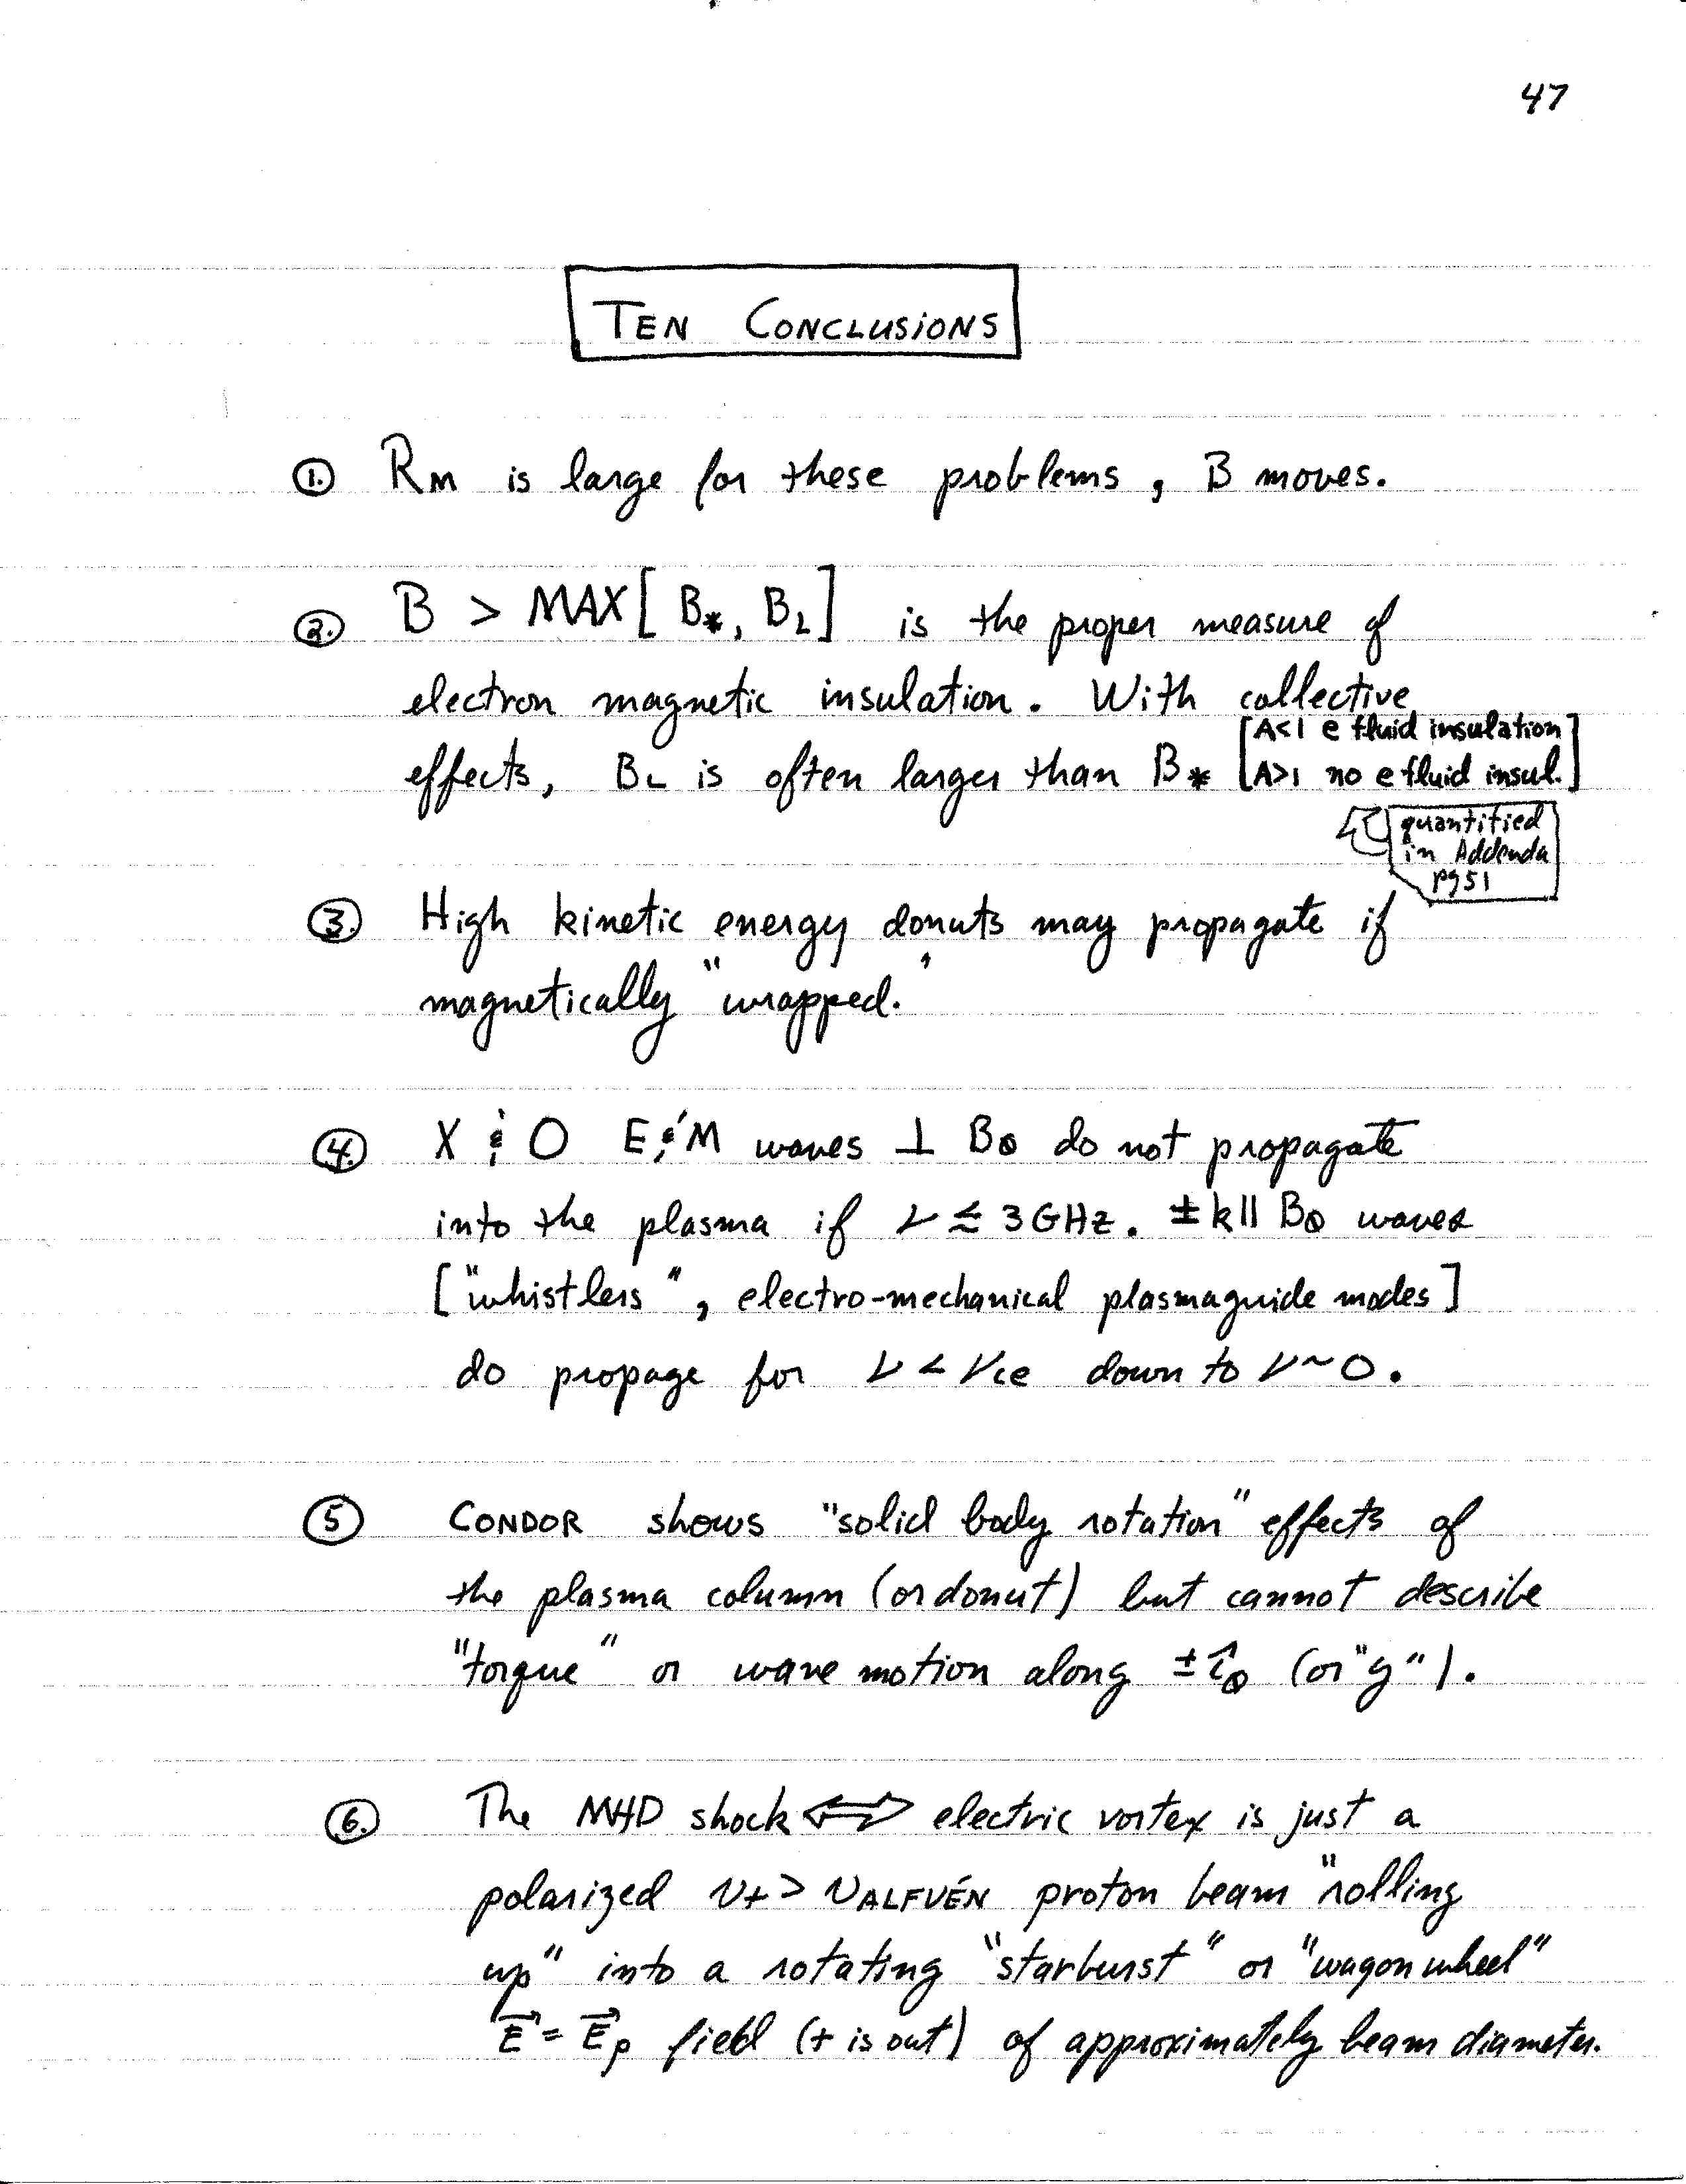 47
TEN CONCLUSIONS
①. RM is large for these problems, B moves.
②. B > MAX[B*, BL] is the proper measure of
electron magnetic insulation. With collective
effects, BL is often larger than B* [A<1 e fluid insulation]
[A>1 no e fluid insul.]
quantified
in Addenda
pg 51
③. High kinetic energy donuts may propagate if
magnetically "wrapped."
④. X & O E&M waves ⊥ Bθ do not propagate
into the plasma if ν ≲ 3GHz. ±k∥ Bθ waves
["whistlers", electro-mechanical plasmaguide modes]
do propage for ν < νce down to ν~0.
⑤ CONDOR shows "solid body rotation" effects of
the plasma column (or donut) but cannot describe
"torque" or wave motion along ±îθ (or "y").
⑥. The MHD shock ⟺ electric vortex is just a
polarized v+ > vALFVÉN proton beam "rolling
up" into a rotating "starburst" or "wagon wheel"
E⃗ = E⃗ρ field (+ is out) of approximately beam diameter.